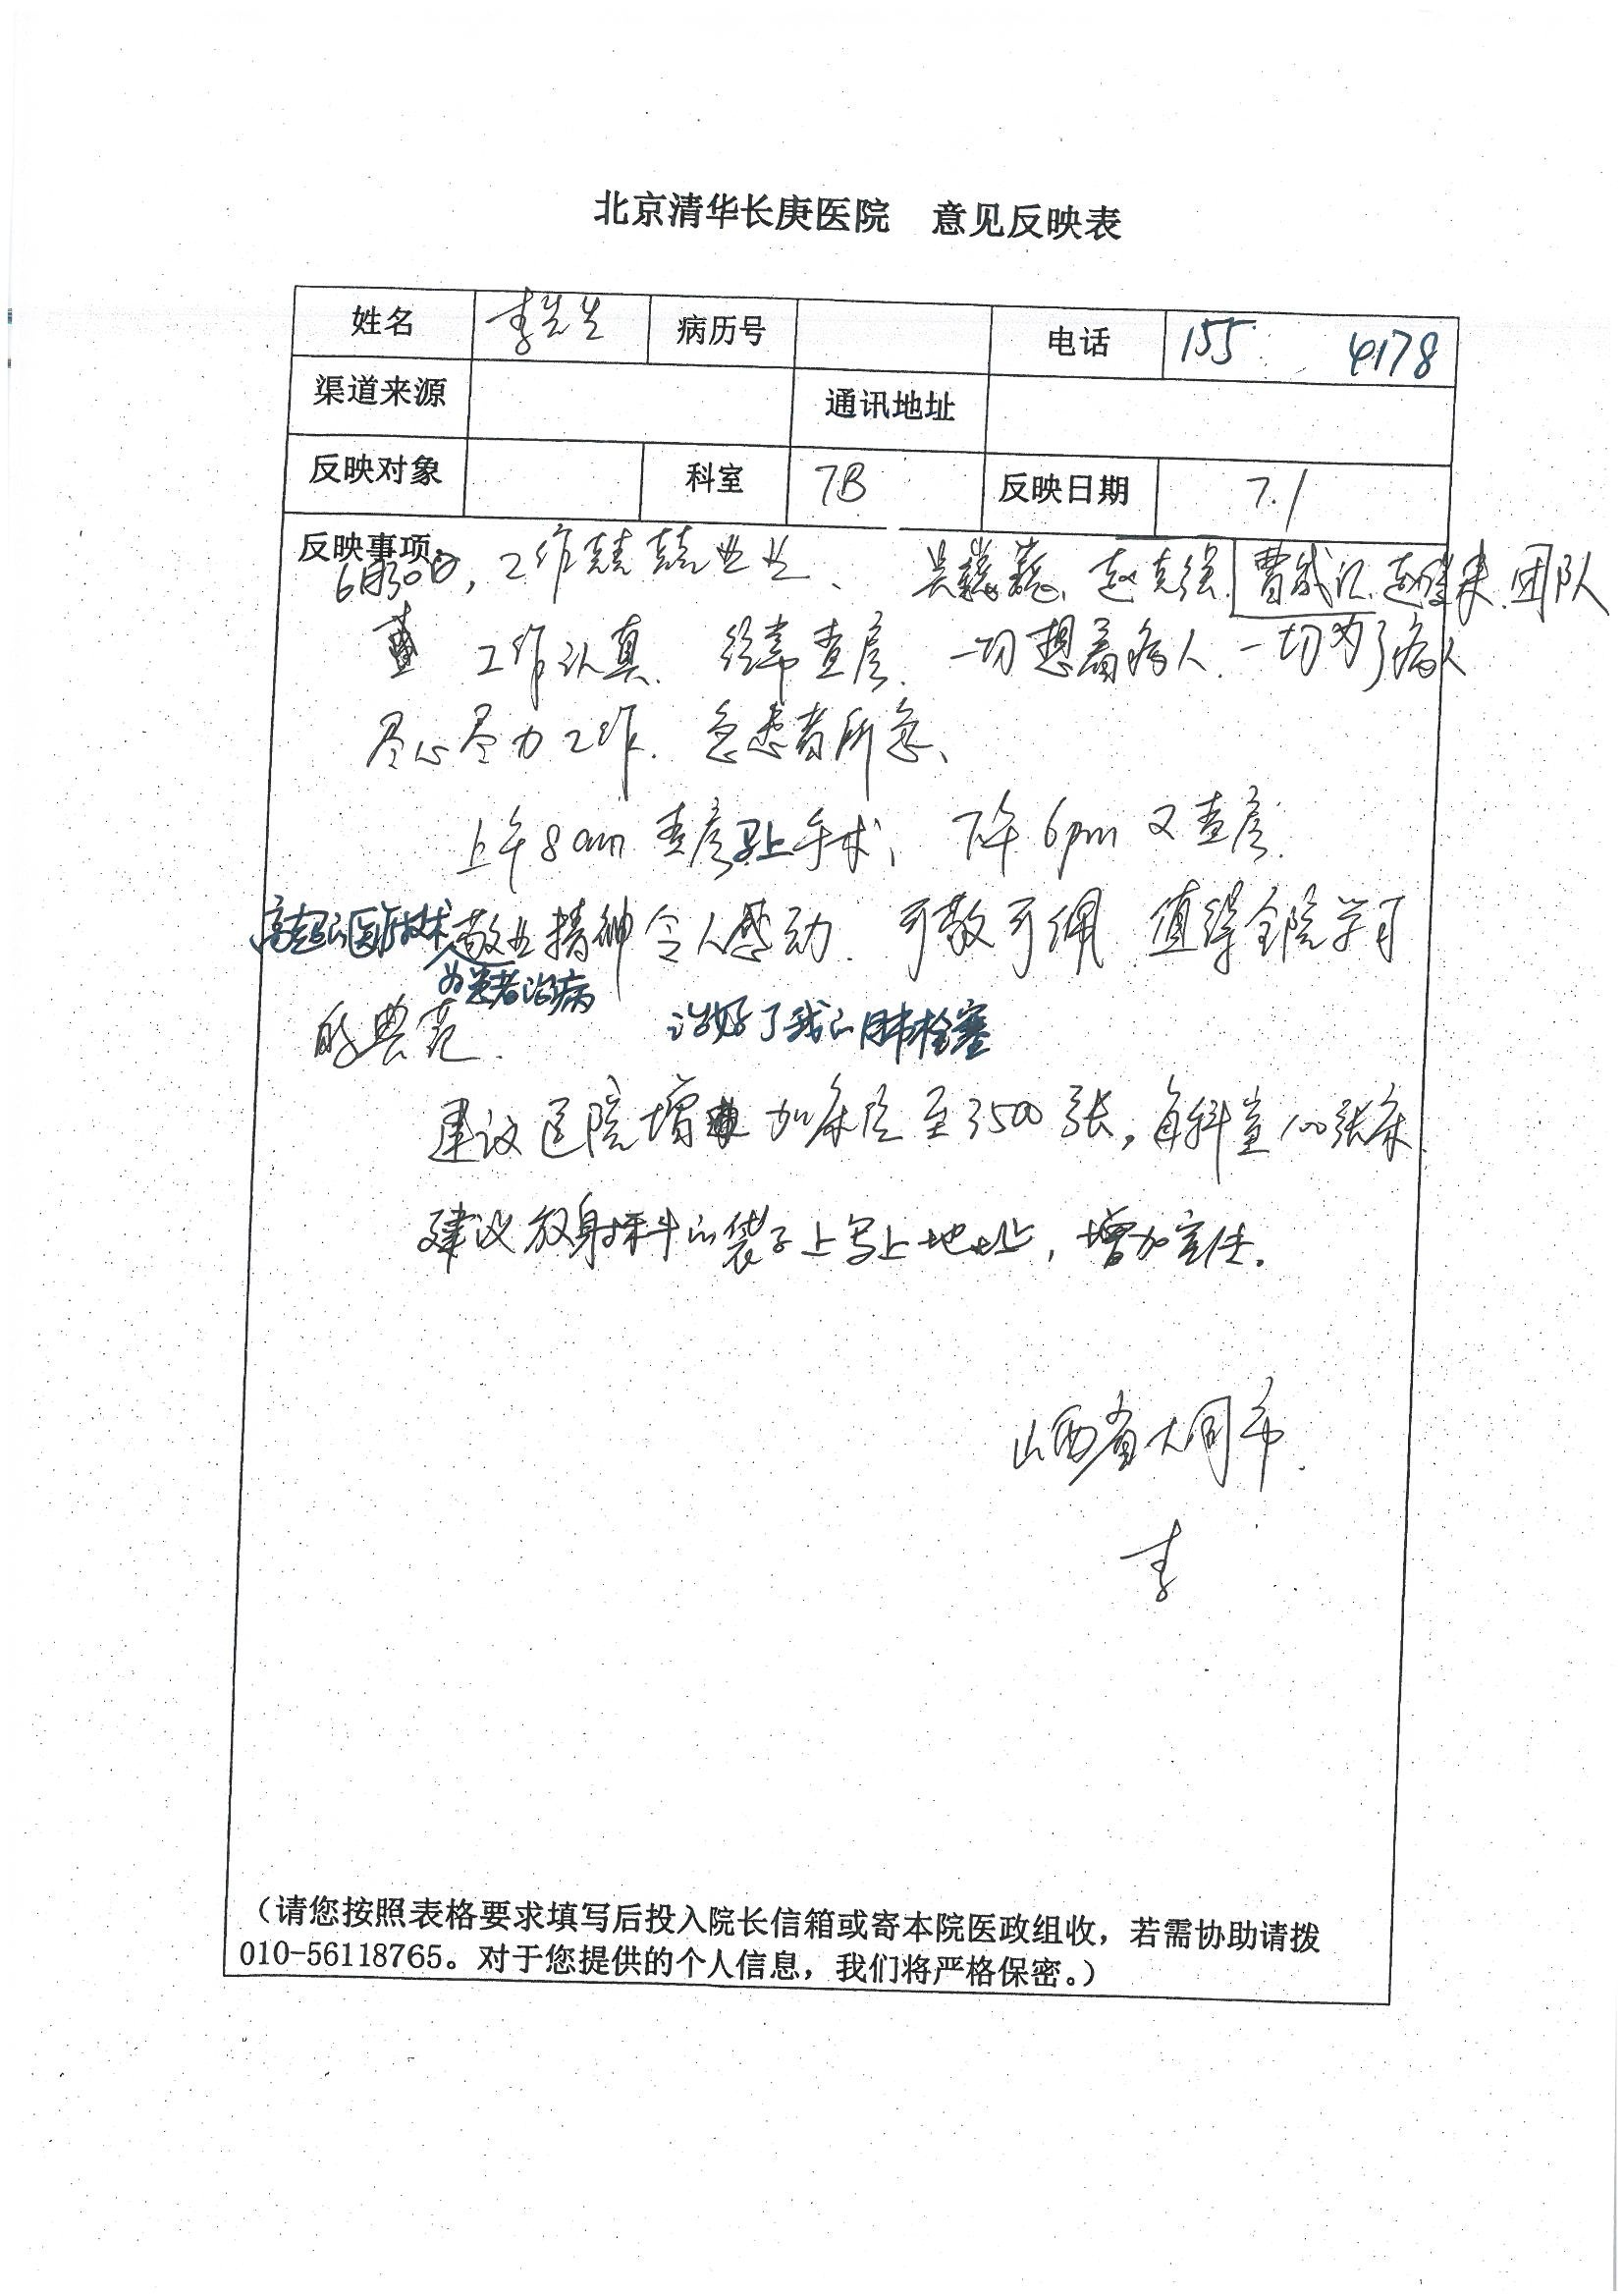 北京清华长庚医院 意见反映表
姓名 李先生 病历号 电话 155 4178
渠道来源 通讯地址
反映对象 科室 7B 反映日期 7.1
反映事项:
6月30日,工作兢兢业业、吴巍巍、赵克强、曹成江、赵健来、团队
工作认真.经常查房.一切想着病人.一切为了病人
尽心尽力工作.急患者所急、
上午8am查房马上手术,下午6pm又查房.
高超的医疗技术 敬业精神令人感动.可敬可佩 值得全院学习
为患者治病
的典范. 治好了我的肺栓塞
建议医院增加床位至3500张,每科室100张床.
建议放射科的袋子上写上地址,增加宣传.
山西省大同市.
李
(请您按照表格要求填写后投入院长信箱或寄本院医政组收,若需协助请拨
010-56118765。对于您提供的个人信息,我们将严格保密。)